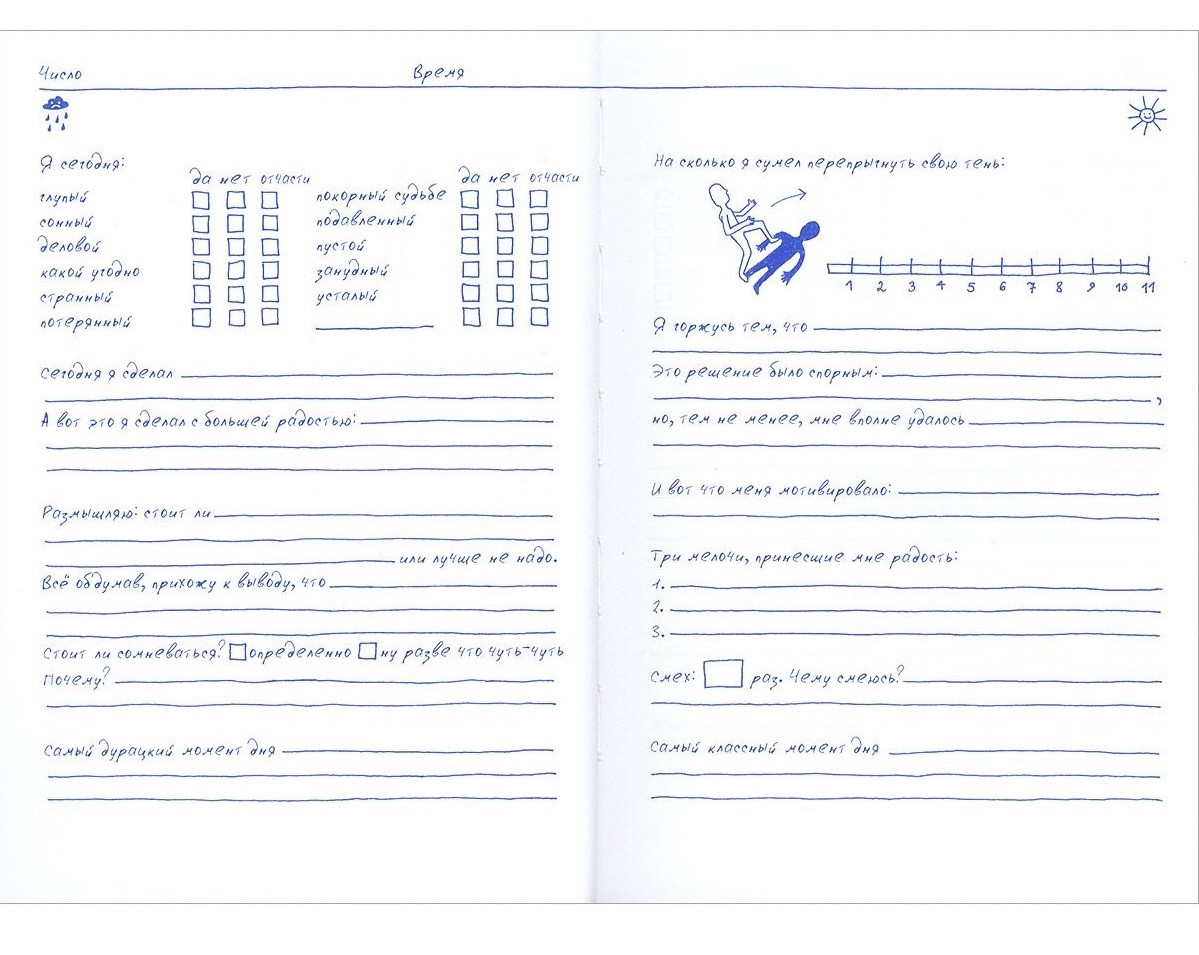 Число Время
Я сегодня:
да нет отчасти да нет отчасти
глупый покорный судьбе
сонный подавленный
деловой пустой
какой угодно занудный
странный усталый
потерянный
Сегодня я сделал
А вот это я сделал с большей радостью:
Размышляю: стоит ли
или лучше не надо.
Всё обдумав, прихожу к выводу, что
Стоит ли сомневаться? определенно ну разве что чуть-чуть
Почему?
Самый дурацкий момент дня
На сколько я сумел перепрыгнуть свою тень:
1 2 3 4 5 6 7 8 9 10 11
Я горжусь тем, что
Это решение было спорным:
,
но, тем не менее, мне вполне удалось
И вот что меня мотивировало:
Три мелочи, принесшие мне радость:
1.
2.
3.
Смех: раз. Чему смеюсь?
Самый классный момент дня